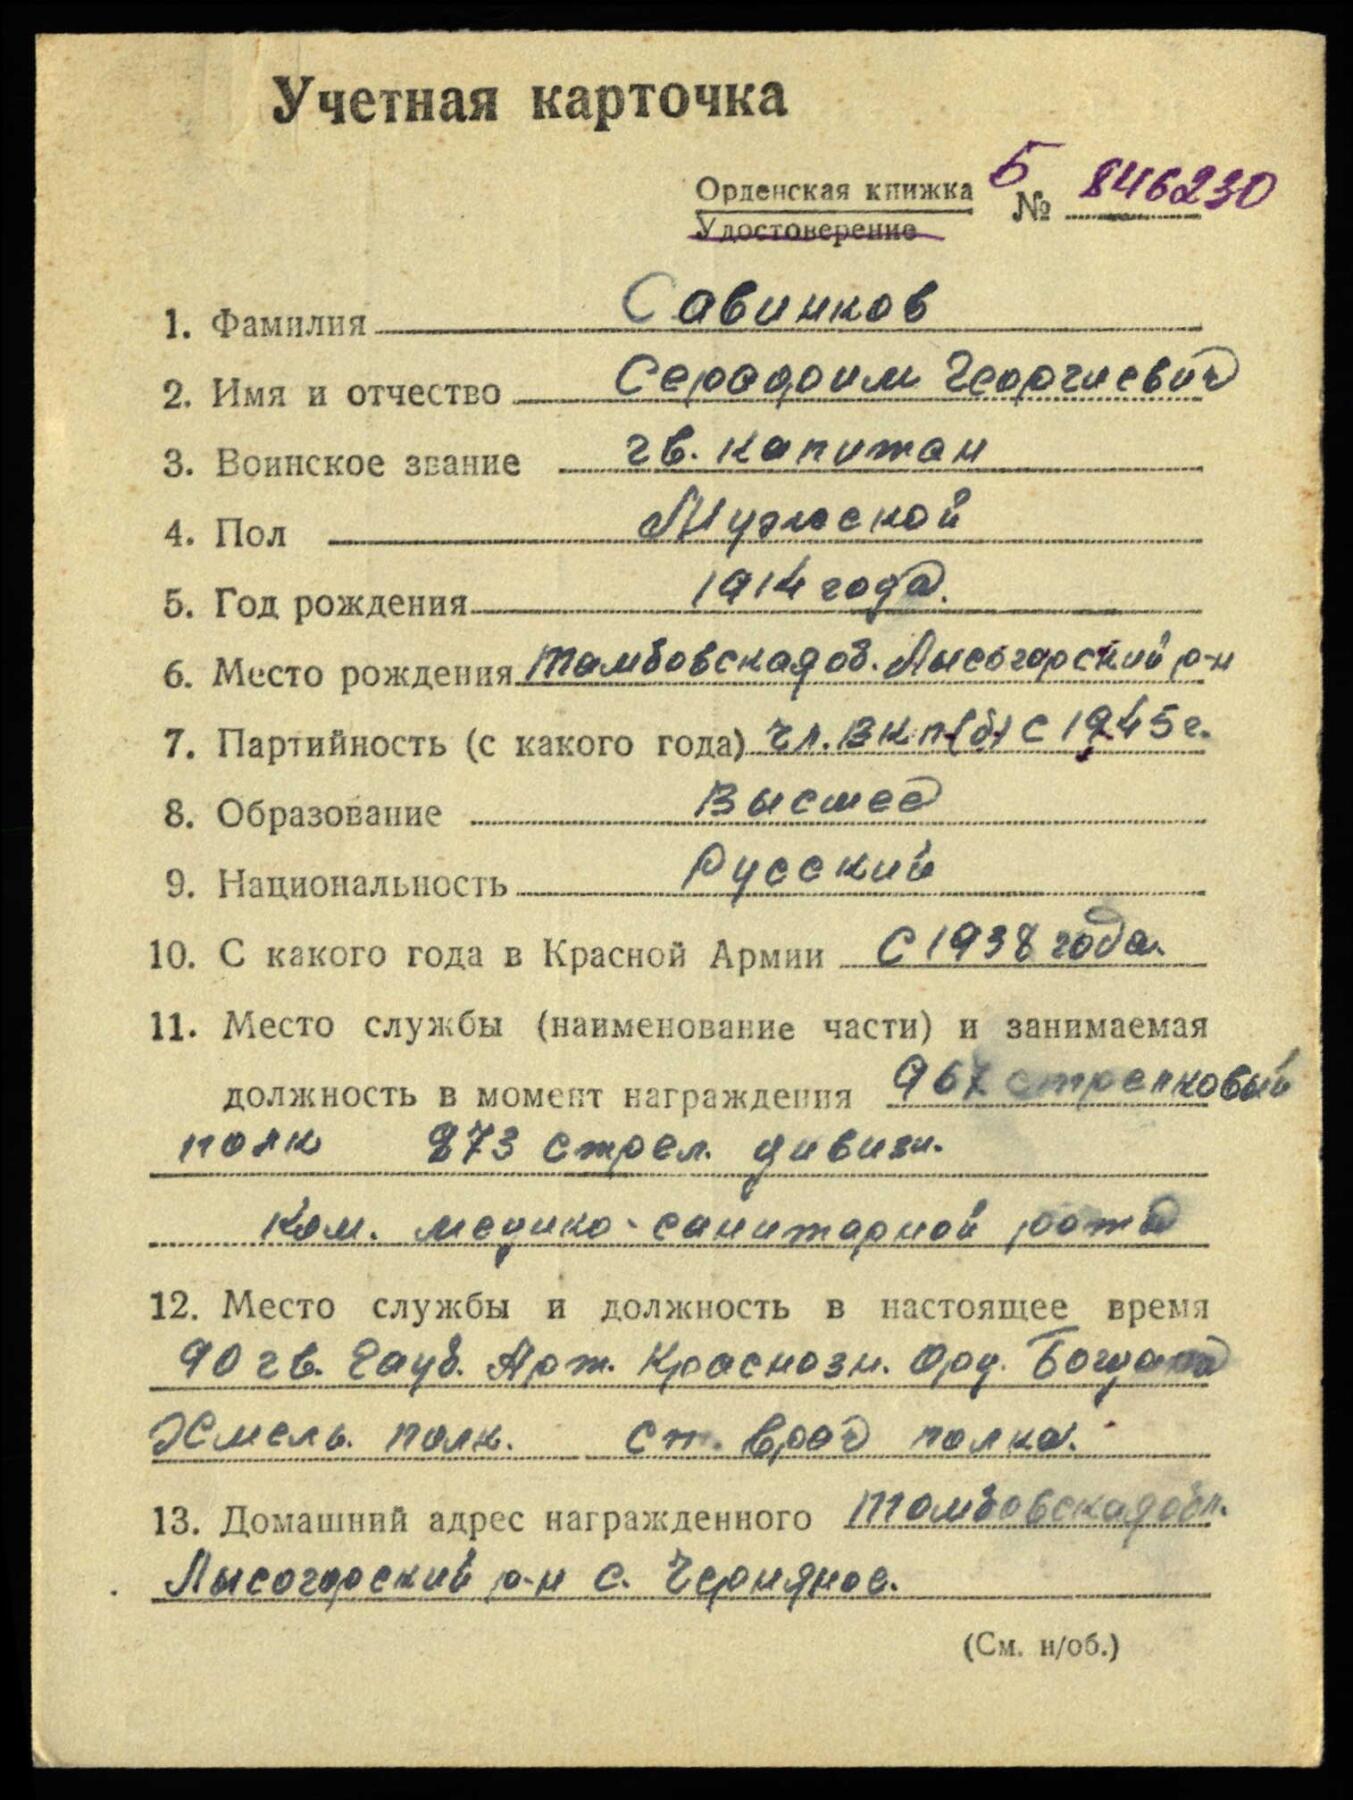 Учетная карточка
Орденская книжка Б № 846230
Удостоверение
1. Фамилия Савинков
2. Имя и отчество Серафим Георгиевич
3. Воинское звание гв. капитан
4. Пол Мужской
5. Год рождения 1914 года.
6. Место рождения Тамбовская об. Лысогорский р-н
7. Партийность (с какого года) Чл. ВКП(б) с 1945 г.
8. Образование Высшее
9. Национальность Русский
10. С какого года в Красной Армии С 1938 года.
11. Место службы (наименование части) и занимаемая
должность в момент награждения 967 стрелковый
полк 273 стрел. дивизи.
Ком. медико-санитарной роты
12. Место службы и должность в настоящее время
90 гв. Гауб. Арт. Краснозн. Орд. Богдана
Хмель. полк. Ст. врач полка.
13. Домашний адрес награжденного Тамбовская обл.
Лысогорский р-н с. Черняное.
(См. н/об.)